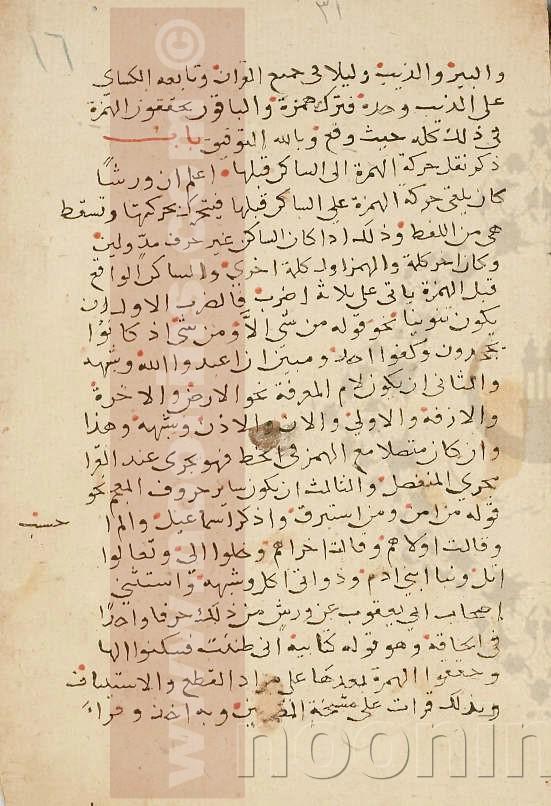 ٣١
١٦
والبير والذيب وليلا في جميع القران وتابعه الكساي
على الذيب وحده فترك همزة والباقون يحققون الهمزة
في ذلك كله حيث وقع وبالله التوفيق باب
ذكر نقل حركة الهمزة الى الساكن قبلها اعلم ان ورشا
كان يلقي حركة الهمزة على الساكن قبلها فيتحرك بحركتها وتسقط
هي من اللفظ وذلك اذا كان الساكن غير حرف مد ولين
وكان اخر كلمة والهمز اول كلمة اخرى والساكن الواقع
قبل الهمزة ياتي على ثلاثة اضرب فالضرب الاول ان
يكون تنوينا نحو قوله من شي الا ومن شي اذ كانوا
يجحدون وكفوا احد ومبين ان اعبدوا الله وشبهه
والثاني ان يكون لام المعرفة نحو الارض والاخرة
والازفة والاولى والان والاذن وشبهه وهذا
وان كان متصلا مع الهمز في الخط فهو يجري عند القرا
مجرى المنفصل والثالث ان يكون ساير حروف المعجم نحو
قوله من امن ومن استبرق واذكر اسماعيل والم ا
حسب
وقالت اولاهم وقالت اخراهم وخلوا الى وتعالوا
اتل ونبا ابني ادم وذواتي اكل وشبهه واستثنى
اصحاب ابي يعقوب عن ورش من ذلك حرفا واحدا
في الحاقة وهو قوله كتابيه اني ظننت فسكنوا الها
وحققوا الهمزة بعدها على مراد القطع والاستيناف
وبذلك قرات على مشيخة المصريين وبه اخذ وقرا
www.
©
noonin